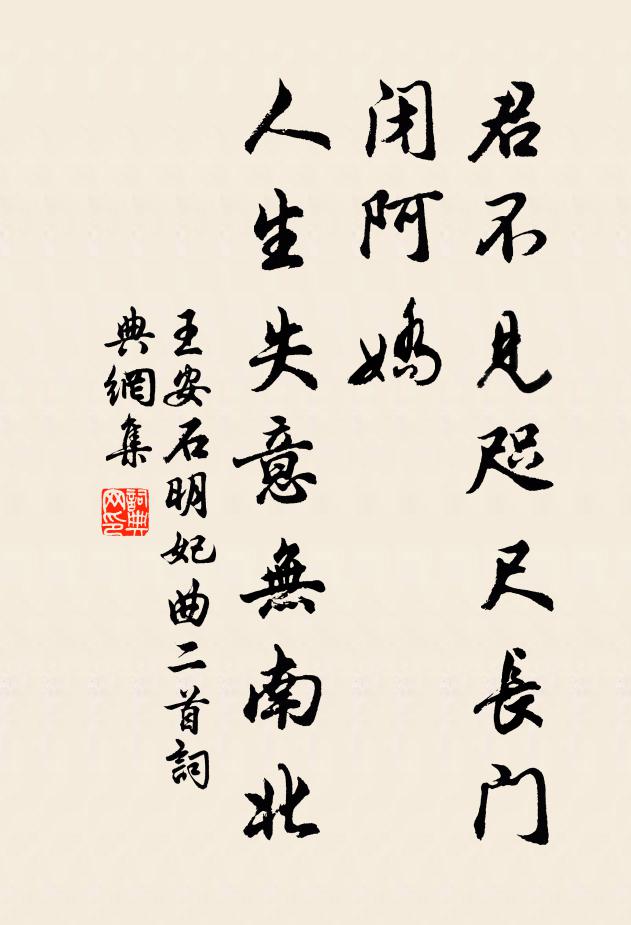 君不見咫尺長門
闭阿嬌
人生失意無南北
王安石明妃曲二首詞
典網集
詞典网印